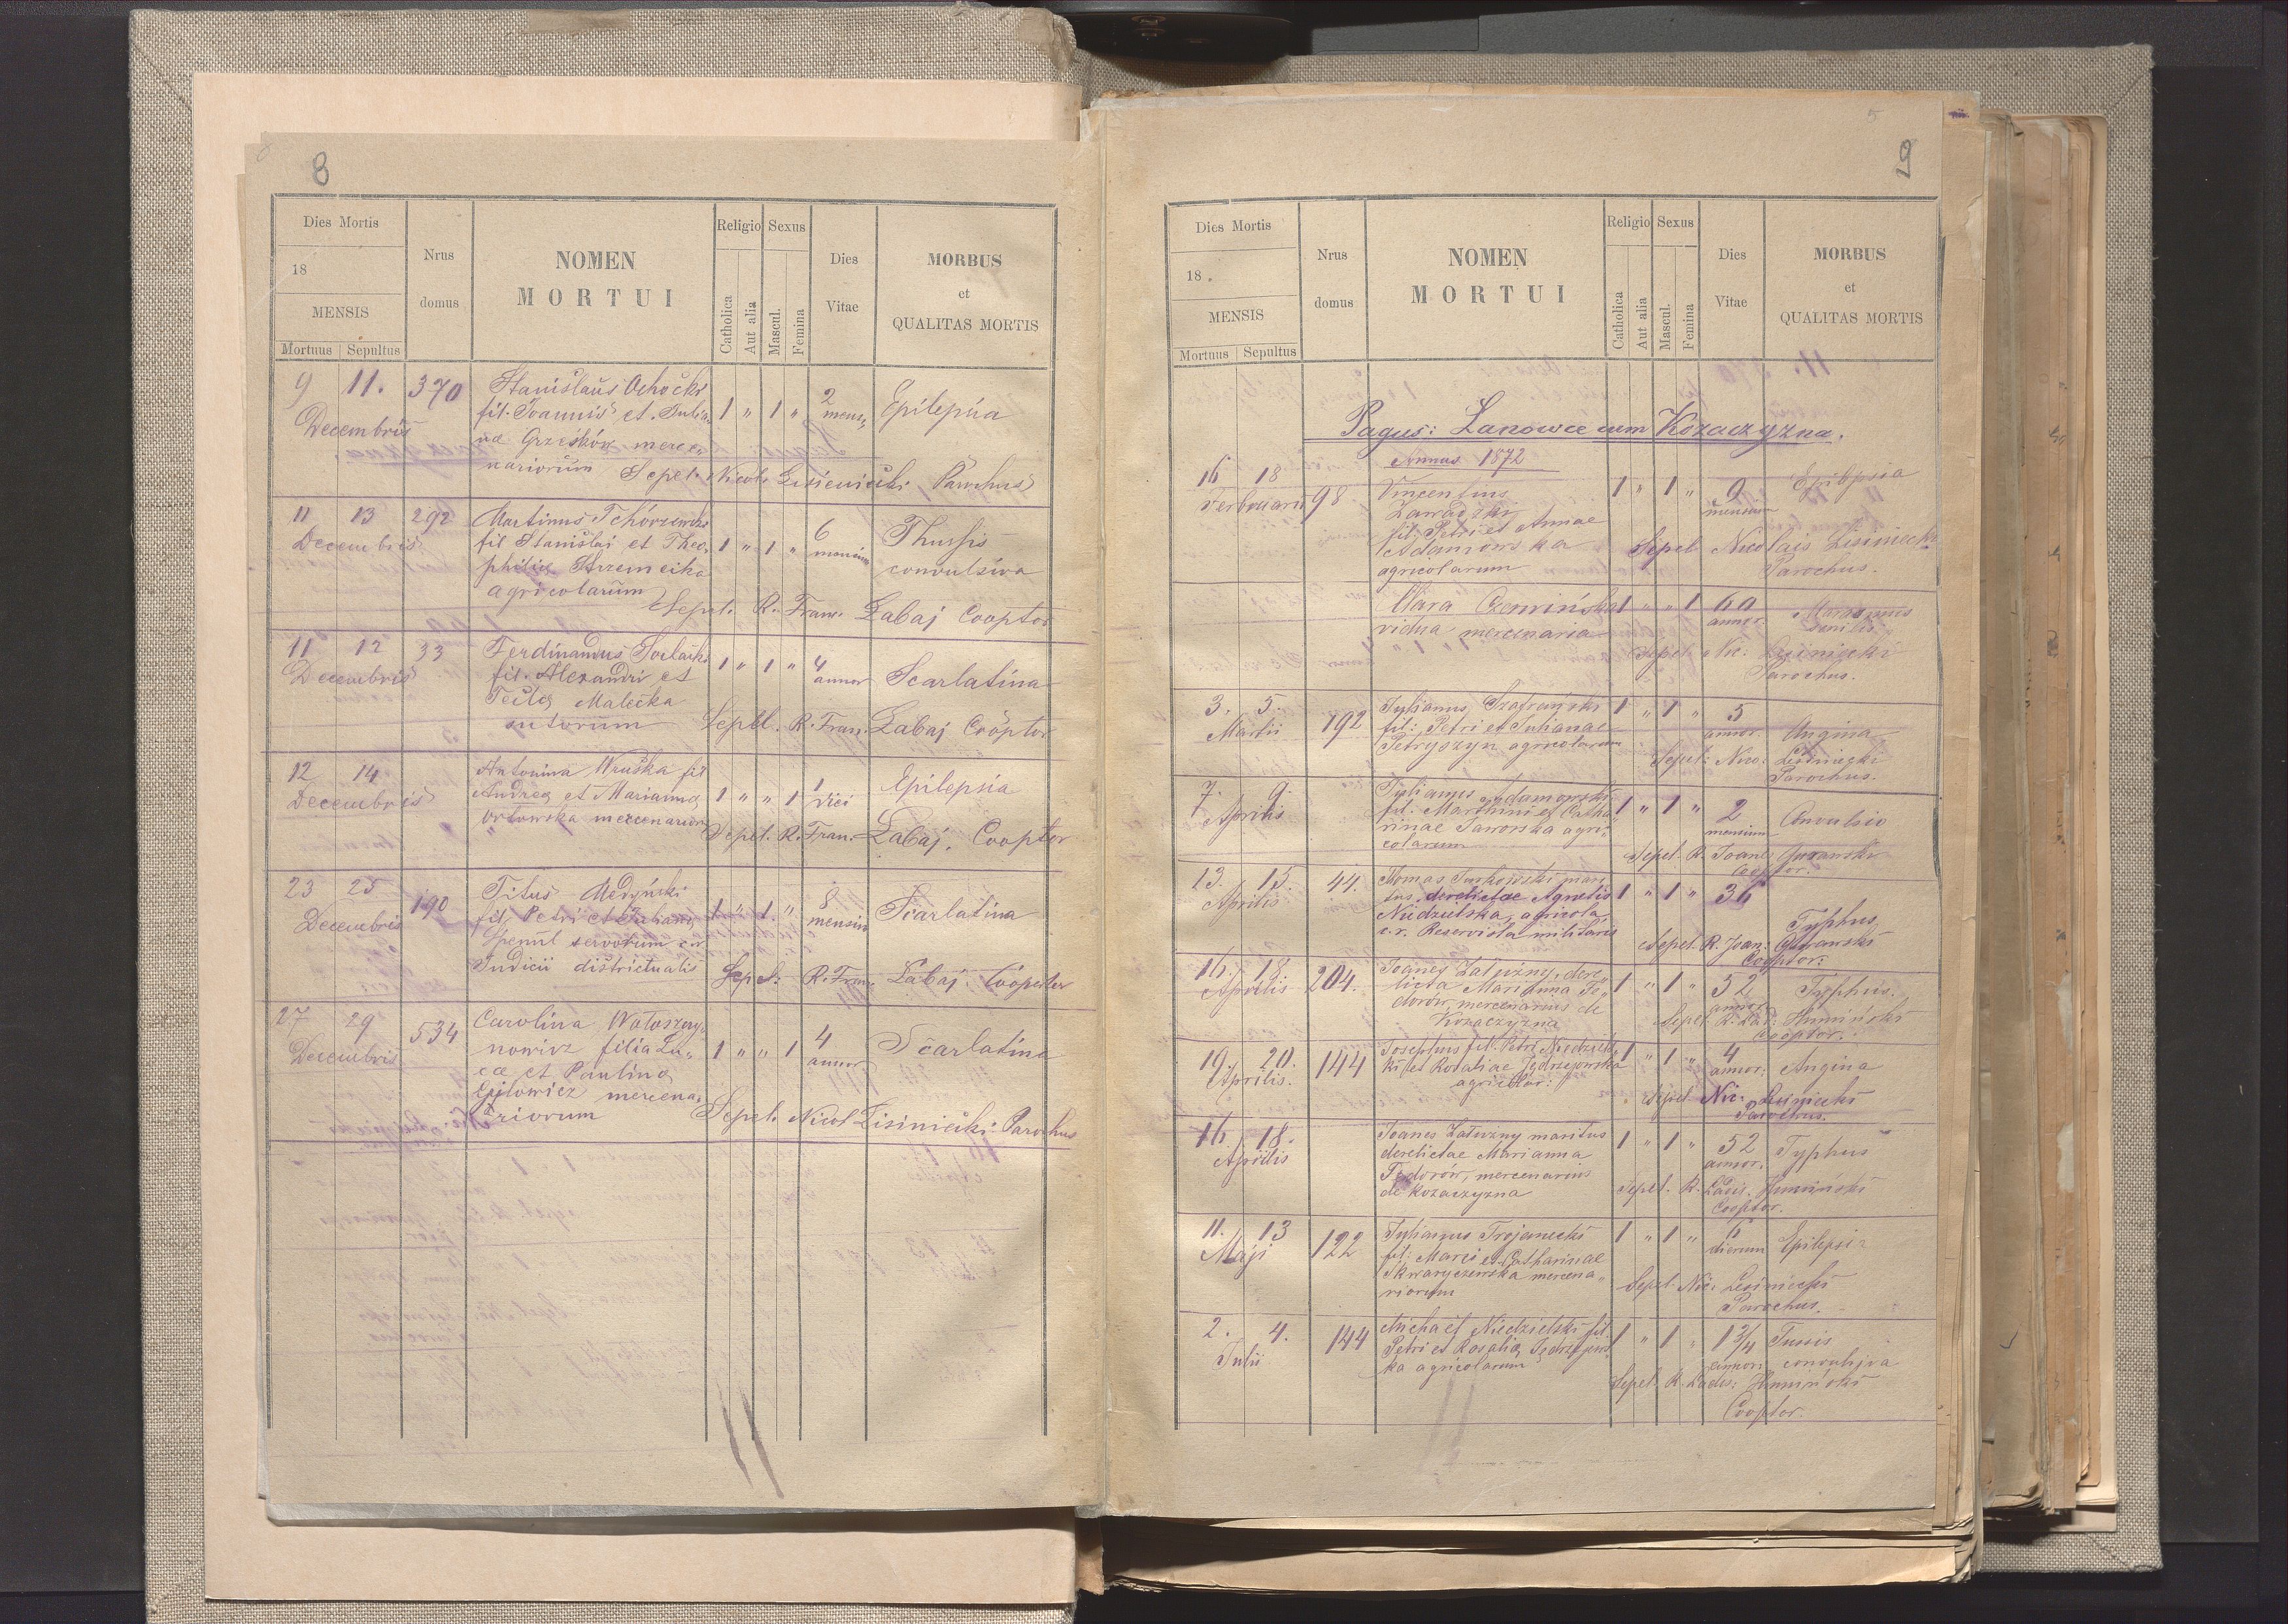 8
Dies Mortis
18
MENSIS
Mortuus Sepultus
Nrus
domus
NOMEN
MORTUI
Religio
Catholica
Aut alia
Sexus
Mascul.
Femina
Dies
Vitae
MORBUS
et
QUALITAS MORTIS
9 11. 370
Decembris
Stanislaus Ochocki
fil. Joannis et Julian
na Grześków merce
nariorum
1 " 1 "
2
mens
Epilepsia
Sepel. Nicol. Lisieniecki Parochus
11 13 292
Decembris
Martinus Tchórzewski
fil Stanislai et Theo
philia Strzemeika
agricolarum
1 " 1 "
6
mensium
Thussis
convulsiva
Sepel. R. Franc. Łabaj Cooptor
11 12 33
Decembris
Ferdinandus
fil. Alexandri et
Tecla Malecka
sutorum
1 " 1 "
4
annor
Scarlatina
Sepel. R. Franc. Łabaj Cooptor
12 14
Decembris
Antonina Wruska fil
Andrea et Marianna
Orłowska mercenarior
1 " " 1
1
diei
Epilepsia
Sepel. R. Fran. Łabaj. Cooptor
23 25 190
Decembris
Titus Medyński
fil Petri et Juliana
servorum
Judicii districtualis
1 " 1 "
8
mensium
Scarlatina
Sepel: R. Franc Łabaj. Cooperator
27 29 534
Decembris
Carolina Wołoszcy
nowicz filia Lu
ca et Paulina
mercena
riorum
1 " " 1
4
annor
Scarlatina
Sepel. Nicol Lisiniecki Parochus
9
Dies Mortis
18 .
MENSIS
Mortuus Sepultus
Nrus
domus
NOMEN
MORTUI
Religio
Catholica
Aut alia
Sexus
Mascul.
Femina
Dies
Vitae
MORBUS
et
QUALITAS MORTIS
Pagus: Lanowce cum Kozaczyzna.
Annus 1872
16 18
Ferbuarii 98
Vincentius
Zawadzki
fil: Petri et Annae
Adamowska
agricolarum
1 " 1 "
9
mensium
Epilepsia
Sepel Nicolais Lisiniecki
Parochus.
Clara Czerwińska
vidua mercenaria
1 " " 1
60
annor.
Marasmus
senilis
Sepel. Nic: Lisiniecki
Parochus.
3. 5.
Martii 192
Julianus Szafrański
fil: Petri et Julianae
Petryszyn agricolarum
1 " 1 "
5
annor.
Angina
Sepel: Nico: Lisiniecki
Parochus.
7. 9.
Aprilis
Julianus Adamowski
fil: Marthini et Catha
rinae Jaworska agri
colarum
1 " 1 "
2
mensium
Convulsio
Sepel. R. Joan: Guranski
Cooptor.
13. 15. 44.
Aprilis
Thomas Turkowski mari
tus derelictae Agnetis
Niedzielska, agricola
c. r. Reservista militaris
1 " 1 "
36
Typhus
Sepel. R. Joan: Guranski
Cooptor.
16. 18. 204.
Aprilis
Joanes Zatwizny, dere
licta Marianna Fe
dorów, mercenarius de
Kozaczyzna
1 " 1 "
52
annor.
Typhus.
Sepel. R. Lad: Humiński
Cooptor.
19. 20. 144
Aprilis.
Josephus fil. Petri Niedziel
ki et Rosaliae Jędrzejowska
agricolar:
1 " 1 "
4
annor:
Angina
Sepel Nic. Lisiniecki
Parochus.
16. 18.
Aprilis
Joanes Zatwizny maritus
derelictae Marianna
Fedorów, mercenarius
de Kozaczyzna
1 " 1 "
52
annor.
Typhus
Sepel. R. Ladis. Humiński
Cooptor.
11. 13 122
Maji
Julianus Trojanecki
fil: Marci et Catharinae
Skwaryczewska mercena
riorum
1 " 1 "
6
dierum
Epilepsia
Sepel. Nic: Lisiniecki
Parochus.
2. 4. 144
Julii
Michael Niedzielski fil.
Petri et Rosalia Jędrzejows
ka agricolarum
1 " 1 "
1 3/4
annor.
Tussis
convulsiva
Sepel. R. Ladis: Humiński
Cooptor.